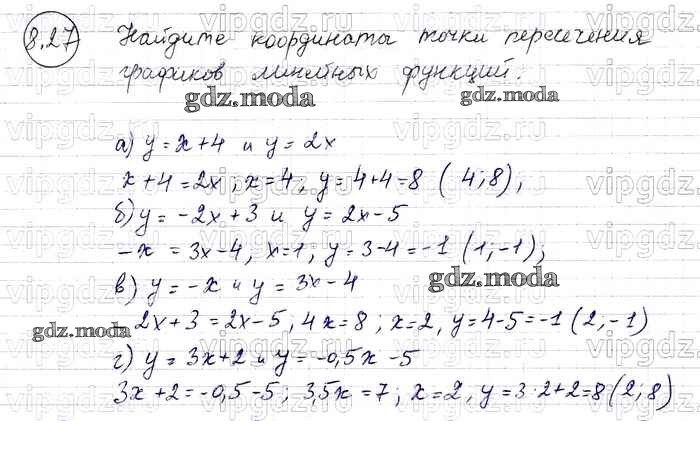 8.27 Найдите координаты точки пересечения
графиков линейных функций.
gdz.moda gdz.moda
а) y = x + 4 и y = 2x
x + 4 = 2x; x = 4, y = 4 + 4 = 8 (4; 8),
б) y = -2x + 3 и y = 2x - 5
-x = 3x - 4, x = 1, y = 3 - 4 = -1 (1, -1),
в) y = -x и y = 3x - 4
gdz.moda
- 2x + 3 = 2x - 5, 4x = 8; x = 2, y = 4 - 5 = -1 (2, -1)
gdz.moda
г) y = 3x + 2 и y = -0,5x - 5
3x + 2 = -0,5 - 5; 3,5x = 7; x = 2, y = 3 · 2 + 2 = 8 (2; 8)
vipgdz.com